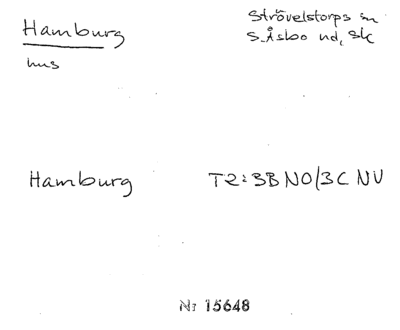 Hamburg
Strövelstorps sn
S. Åsbo hd, Sk
hus
Hamburg T2: 3B NO/3C NV
Nr 15648